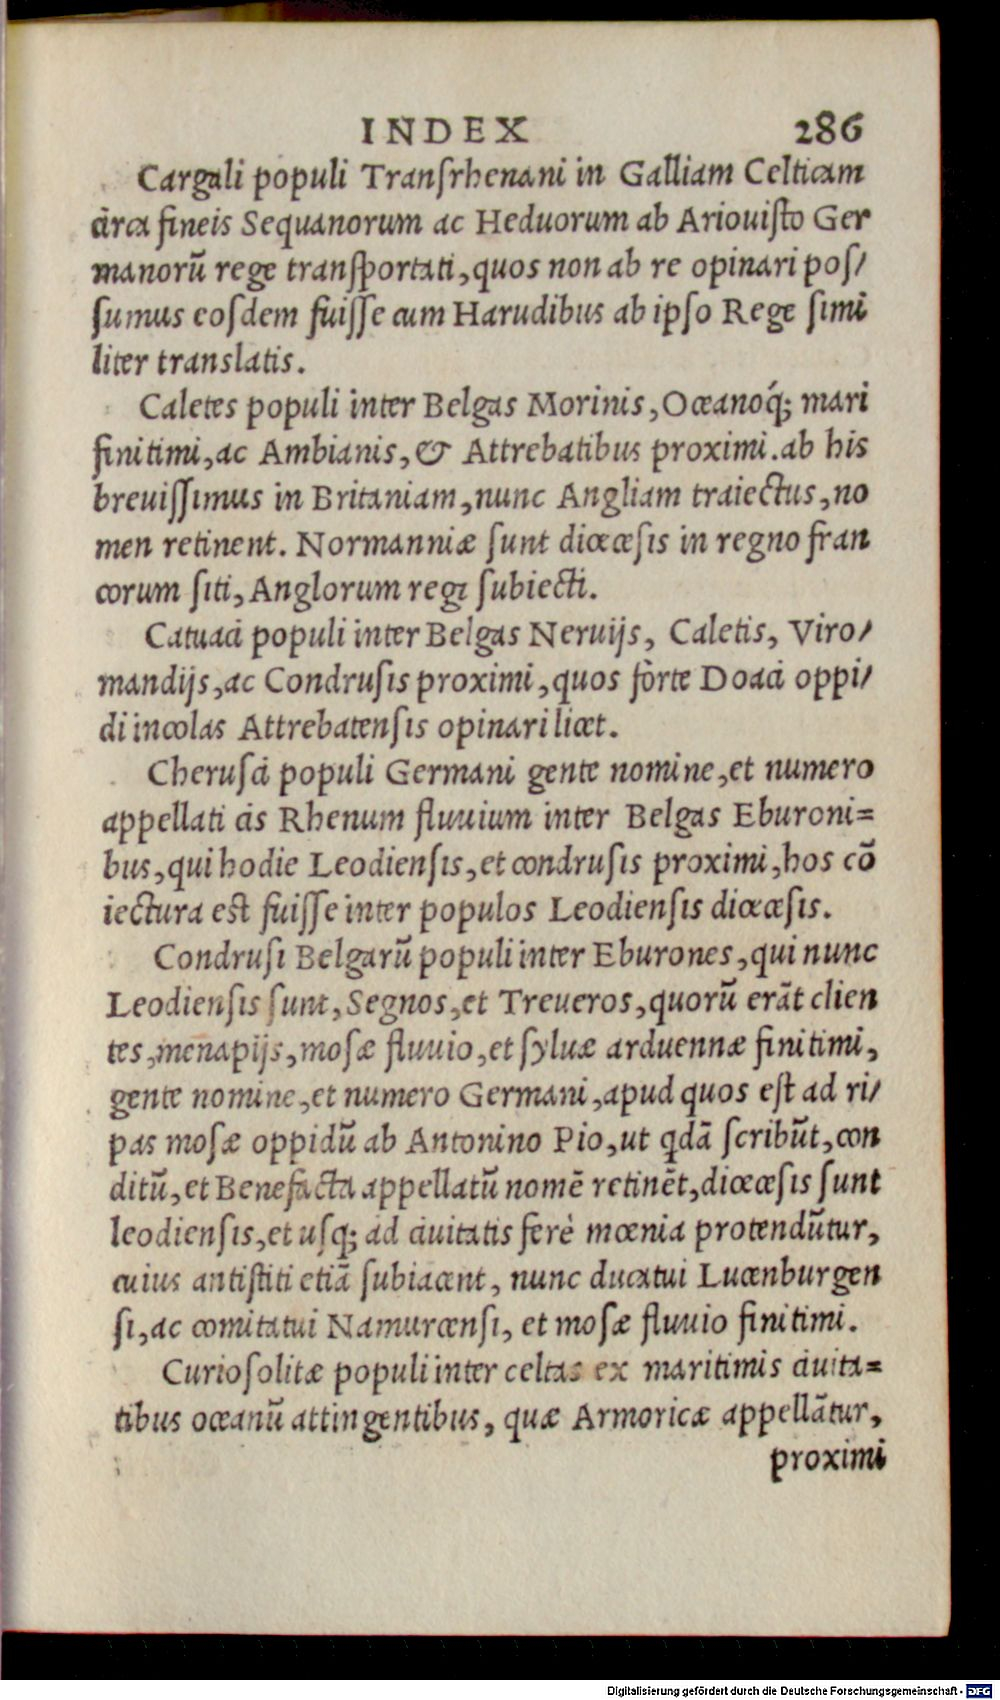 INDEX 286
Cargali populi Tranſrhenani in Galliam Celticam
circa fineis Sequanorum ac Heduorum ab Ariouiſto Ger
manorū rege tranſportati, quos non ab re opinari poſ/
ſumus eoſdem fuiſſe cum Harudibus ab ipſo Rege ſimi
liter translatis.
Caletes populi inter Belgas Morinis, Oceanoq́; mari
finitimi, ac Ambianis, & Attrebatibus proximi. ab his
breuiſſimus in Britaniam, nunc Angliam traiectus, no
men retinent. Normanniæ ſunt diœceſis in regno fran
corum ſiti, Anglorum regi ſubiecti.
Catuaci populi inter Belgas Neruijs, Caletis, Viro/
mandijs, ac Condruſis proximi, quos fòrte Doaci oppi/
di incolas Attrebatenſis opinari licet.
Cheruſci populi Germani gente nomine, et numero
appellati cis Rhenum fluuium inter Belgas Eburoni=
bus, qui hodie Leodienſis, et condruſis proximi, hos cō
iectura est fuiſſe inter populos Leodienſis diœceſis.
Condruſi Belgarū populi inter Eburones, qui nunc
Leodienſis ſunt, Segnos, et Treueros, quorū erāt clien
tes, menapijs, moſæ fluuio, et ſyluæ arduennæ finitimi,
gente nomine, et numero Germani, apud quos eſt ad ri/
pas moſæ oppidū ab Antonino Pio, ut qdā ſcribūt, con
ditū, et Benefacta appellatū nomē retinēt, diœceſis ſunt
leodienſis, et uſq; ad ciuitatis ferè mœnia protendūtur,
cuius antiſtiti etiā ſubiacent, nunc ducatui Lucenburgen
ſi, ac comitatui Namurcenſi, et moſæ fluuio finitimi.
Curioſolitæ populi inter celtas ex maritimis ciuita=
tibus oceanū attingentibus, quæ Armoricæ appellātur,
proximi
Digitalisierung gefördert durch die Deutsche Forschungsgemeinschaft - DFG